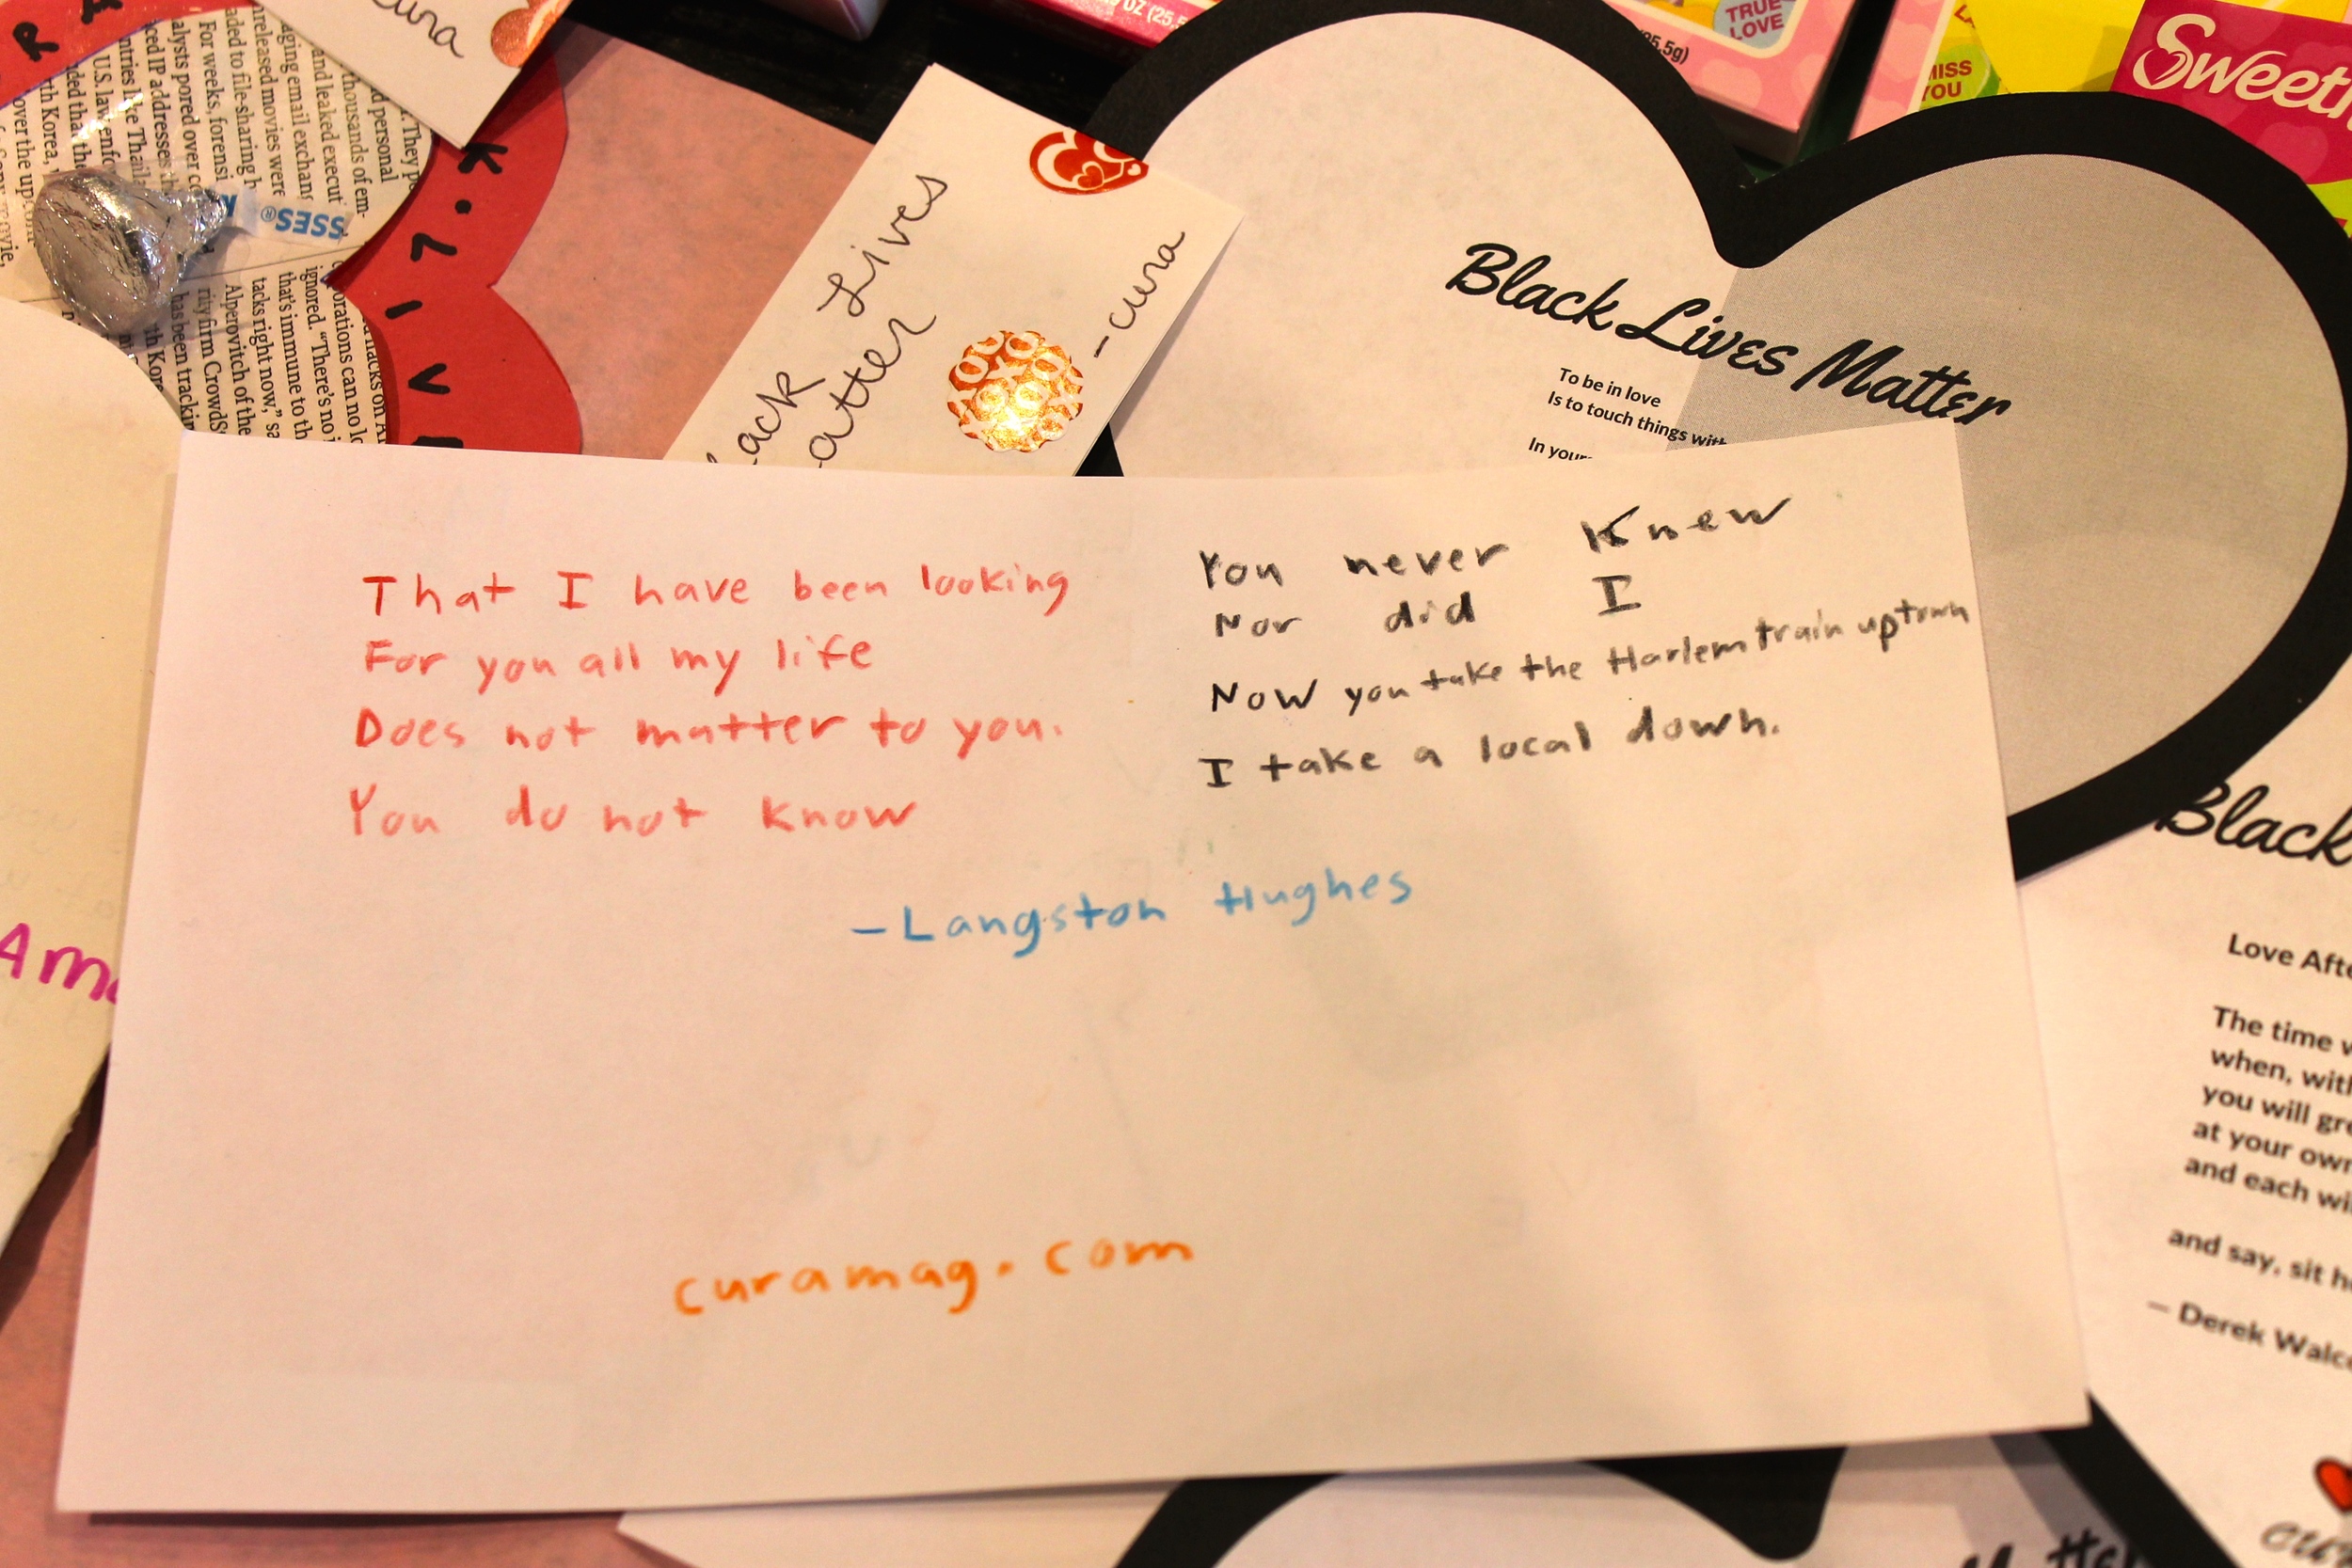 cura
OZ (25.5
TRUE
LOVE
(25.5g)
MISS
YOU
Sweet
KISSES®
K. L I V
Lives
atter
-cura
Black Lives Matter
To be in love
Is to touch things with
In your
That I have been looking
For you all my life
Does not matter to you.
You do not know
You never Knew
Nor did I
Now you take the Harlem train uptown
I take a local down.
-Langston Hughes
curamag.com
Black
Love Afte
The time w
when, with
you will gre
at your own
and each wi
and say, sit he
— Derek Walco
thousands of em-
and leaked execut
aging email exchan
released movies were
aded to file-sharing h
For weeks, forensi
alysts pored over co
ced IP addresses th
ntries like Thail
U.S. law enfo
ded that the
th Korea,
over the up
orations can no lo
ignored. "There's no i
that's immune to th
tacks right now," sa
Alperovitch of the
rity firm CrowdS
has been trackin